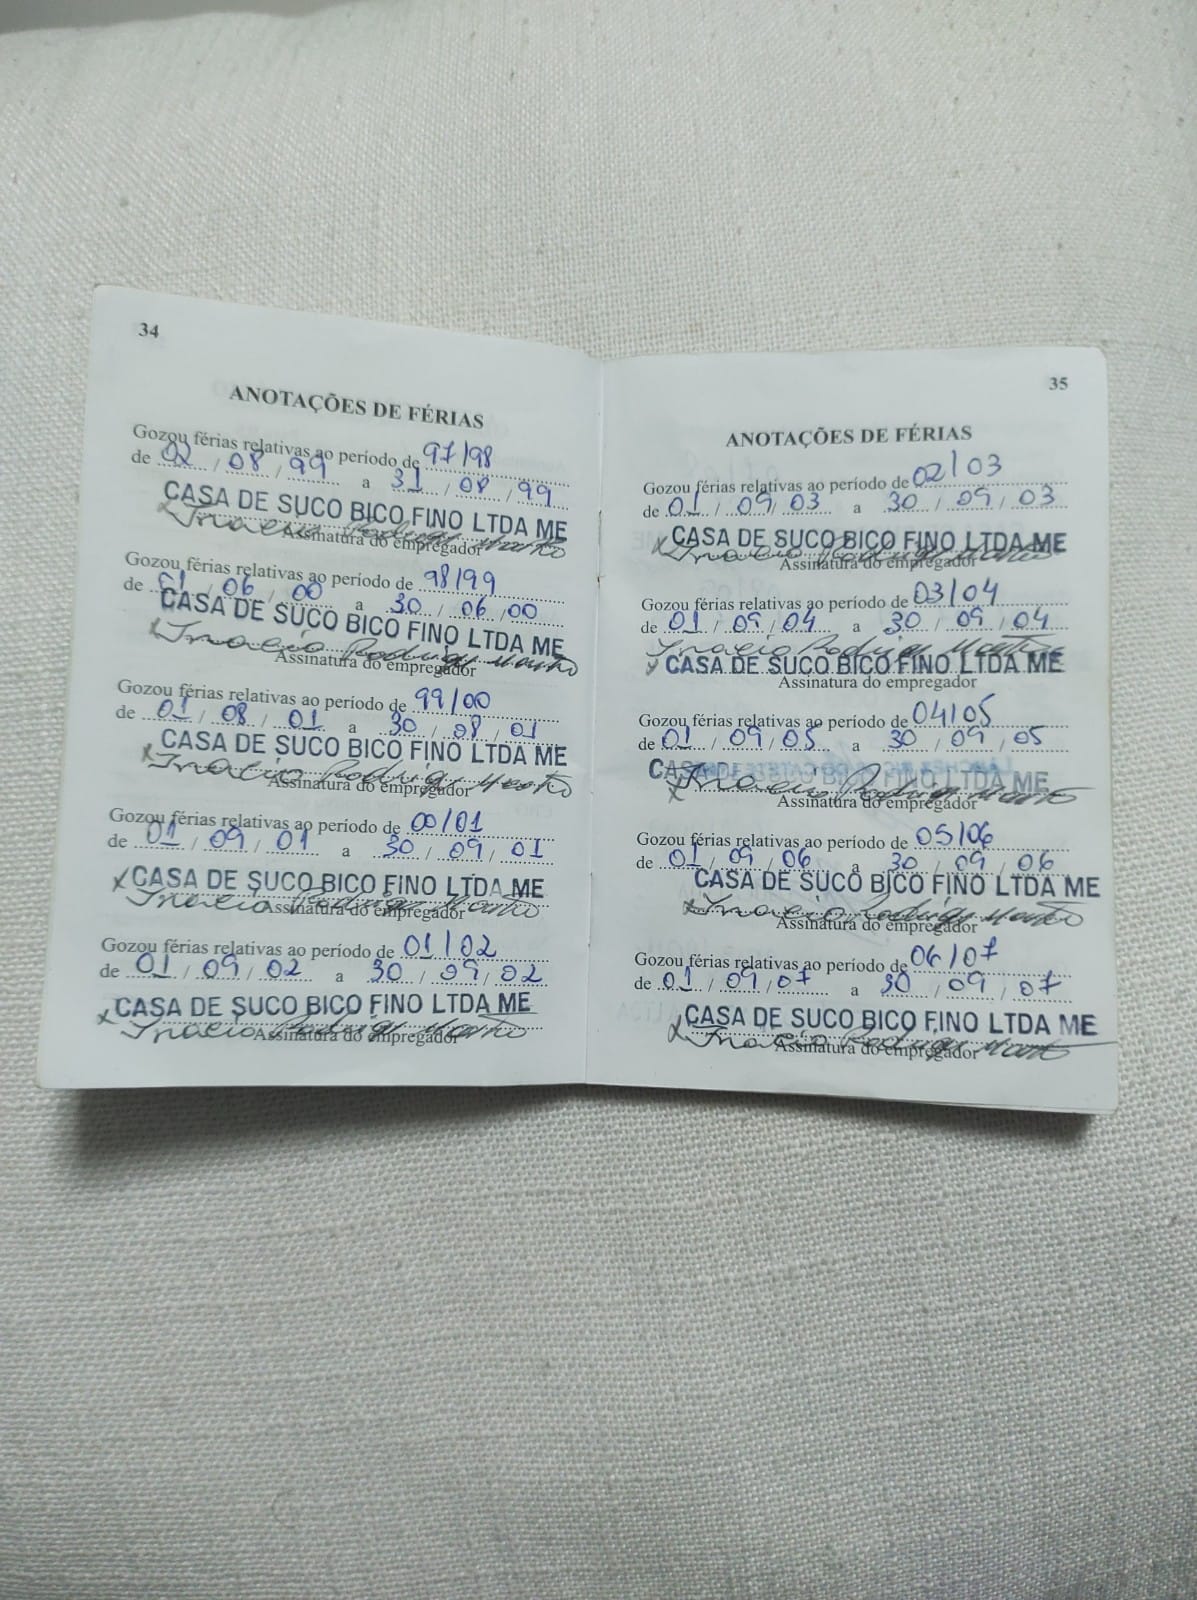 34
ANOTAÇÕES DE FÉRIAS
Gozou férias relativas ao período de 97/98
de 02 / 08 / 99 a 31 / 08 / 99
CASA DE SUCO BICO FINO LTDA ME
Assinatura do empregador
Gozou férias relativas ao período de 98/99
de 01 / 06 / 00 a 30 / 06 / 00
CASA DE SUCO BICO FINO LTDA ME
Assinatura do empregador
Gozou férias relativas ao período de 99/00
de 01 / 08 / 01 a 30 / 08 / 01
CASA DE SUCO BICO FINO LTDA ME
Assinatura do empregador
Gozou férias relativas ao período de 00/01
de 01 / 09 / 01 a 30 / 09 / 01
CASA DE SUCO BICO FINO LTDA ME
Assinatura do empregador
Gozou férias relativas ao período de 01/02
de 01 / 09 / 02 a 30 / 09 / 02
CASA DE SUCO BICO FINO LTDA ME
Assinatura do empregador
35
ANOTAÇÕES DE FÉRIAS
Gozou férias relativas ao período de 02/03
de 01 / 09 / 03 a 30 / 09 / 03
CASA DE SUCO BICO FINO LTDA ME
Assinatura do empregador
Gozou férias relativas ao período de 03/04
de 01 / 09 / 04 a 30 / 09 / 04
CASA DE SUCO BICO FINO LTDA ME
Assinatura do empregador
Gozou férias relativas ao período de 04/05
de 01 / 09 / 05 a 30 / 09 / 05
CASA DE SUCO BICO FINO LTDA ME
Assinatura do empregador
Gozou férias relativas ao período de 05/06
de 01 / 09 / 06 a 30 / 09 / 06
CASA DE SUCO BICO FINO LTDA ME
Assinatura do empregador
Gozou férias relativas ao período de 06/07
de 01 / 09 / 07 a 30 / 09 / 07
CASA DE SUCO BICO FINO LTDA ME
Assinatura do empregador